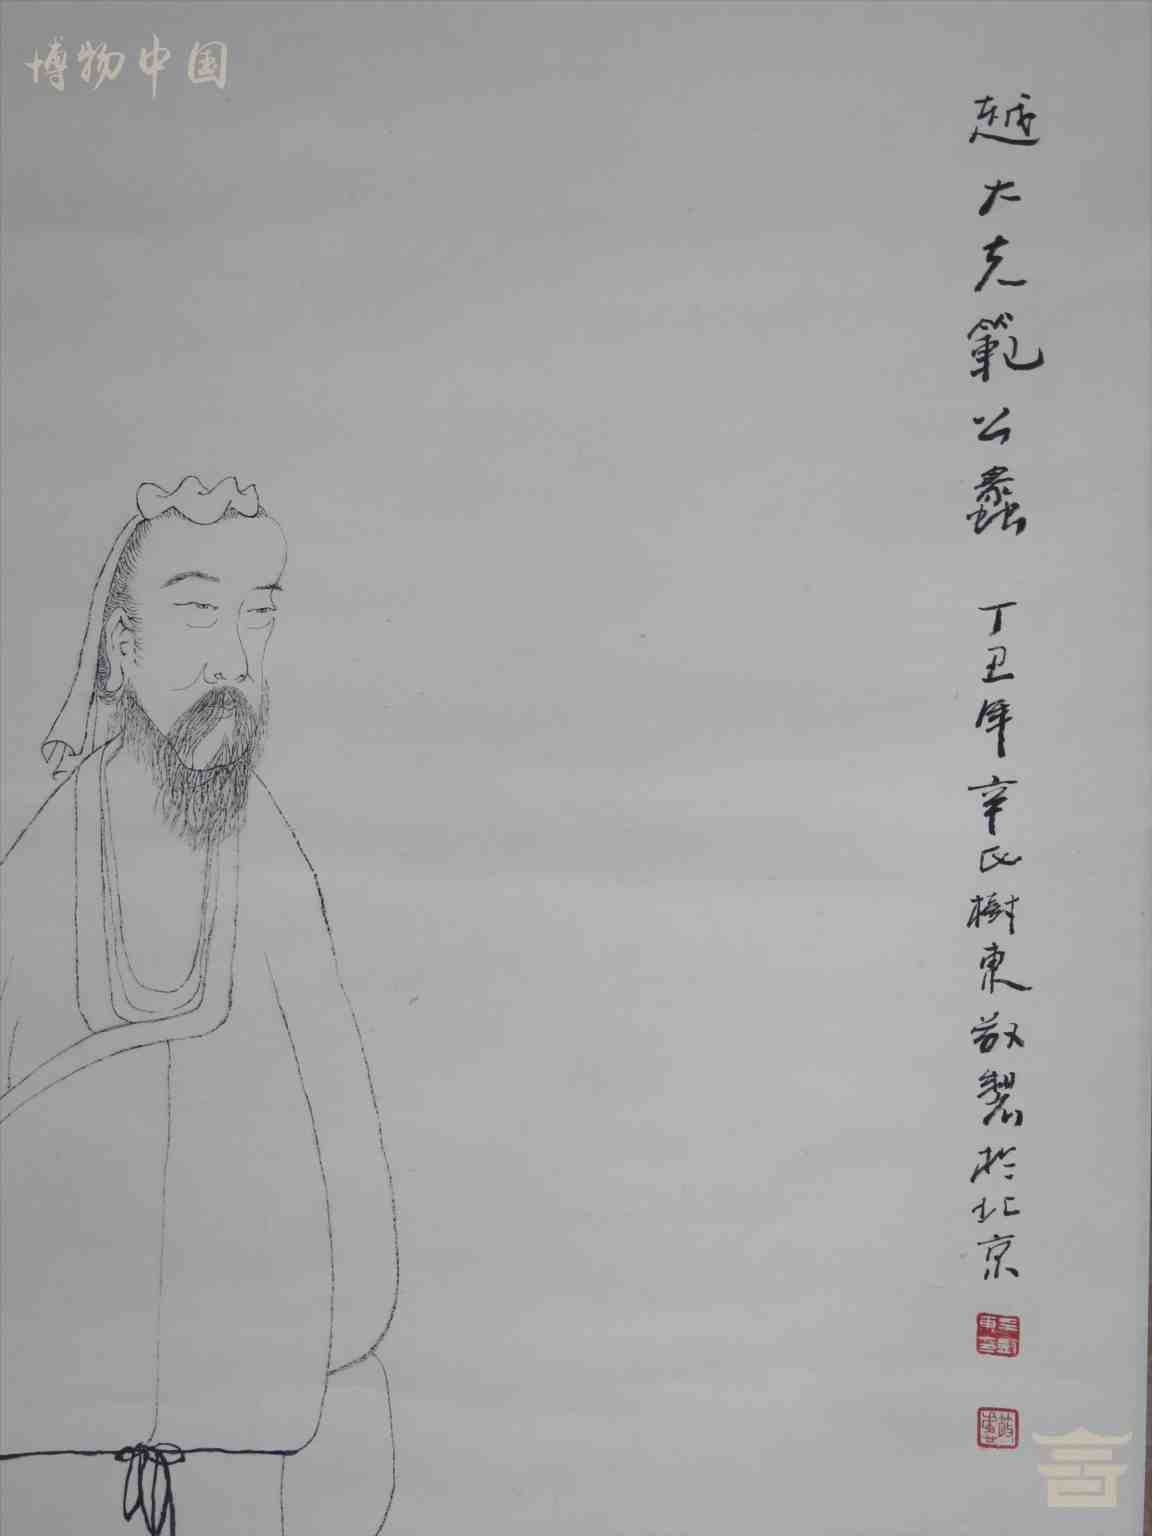 博物中国
越大夫範公蠡 丁丑年辛氏樹東敬製於北京